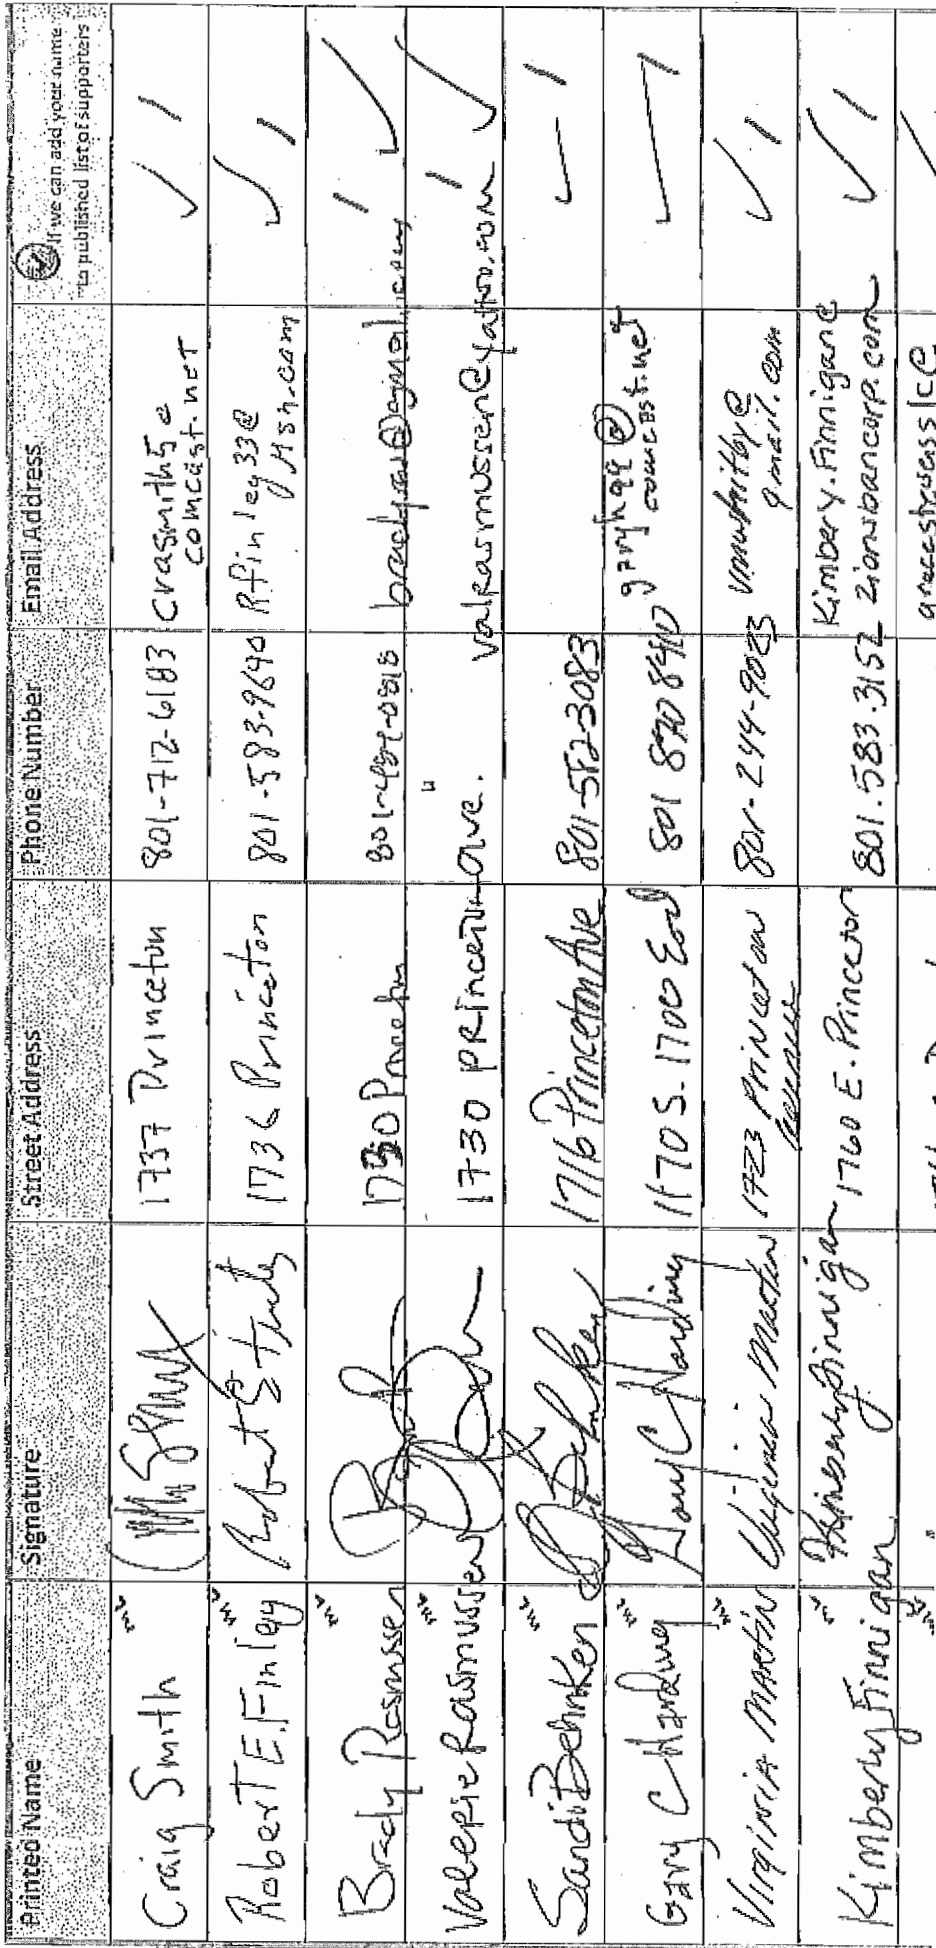 Printed Name Signature Street Address Phone Number Email Address If we can add your name
to published list of supporters
Craig Smith 1737 Princeton 801-712-6183 crasmith5@
comcast.net
Robert E. Finley Robert E Finley 1736 Princeton 801-583-9640 Rfinley33@
msn.com
Brady Rasmussen 1730 Princeton 801-
Valerie Rasmussen 1730 Princeton Ave. valrasmussen@yahoo.com
Sandi Behnken S Behnken 1716 Princeton Ave 801-582-3083
Gary C Harding Gary C Harding 1170 S. 1700 East 801 870 8410 garyhqq@
comcast.net
Virginia Martin Virginia Martin 1723 Princeton 801-244-9033
Avenue gmail.com
Kimberly Finnigan Kimberly Finnigan 1760 E. Princeton 801.583.3152 Kimbery.Finnigan@
zionsbancorp.com